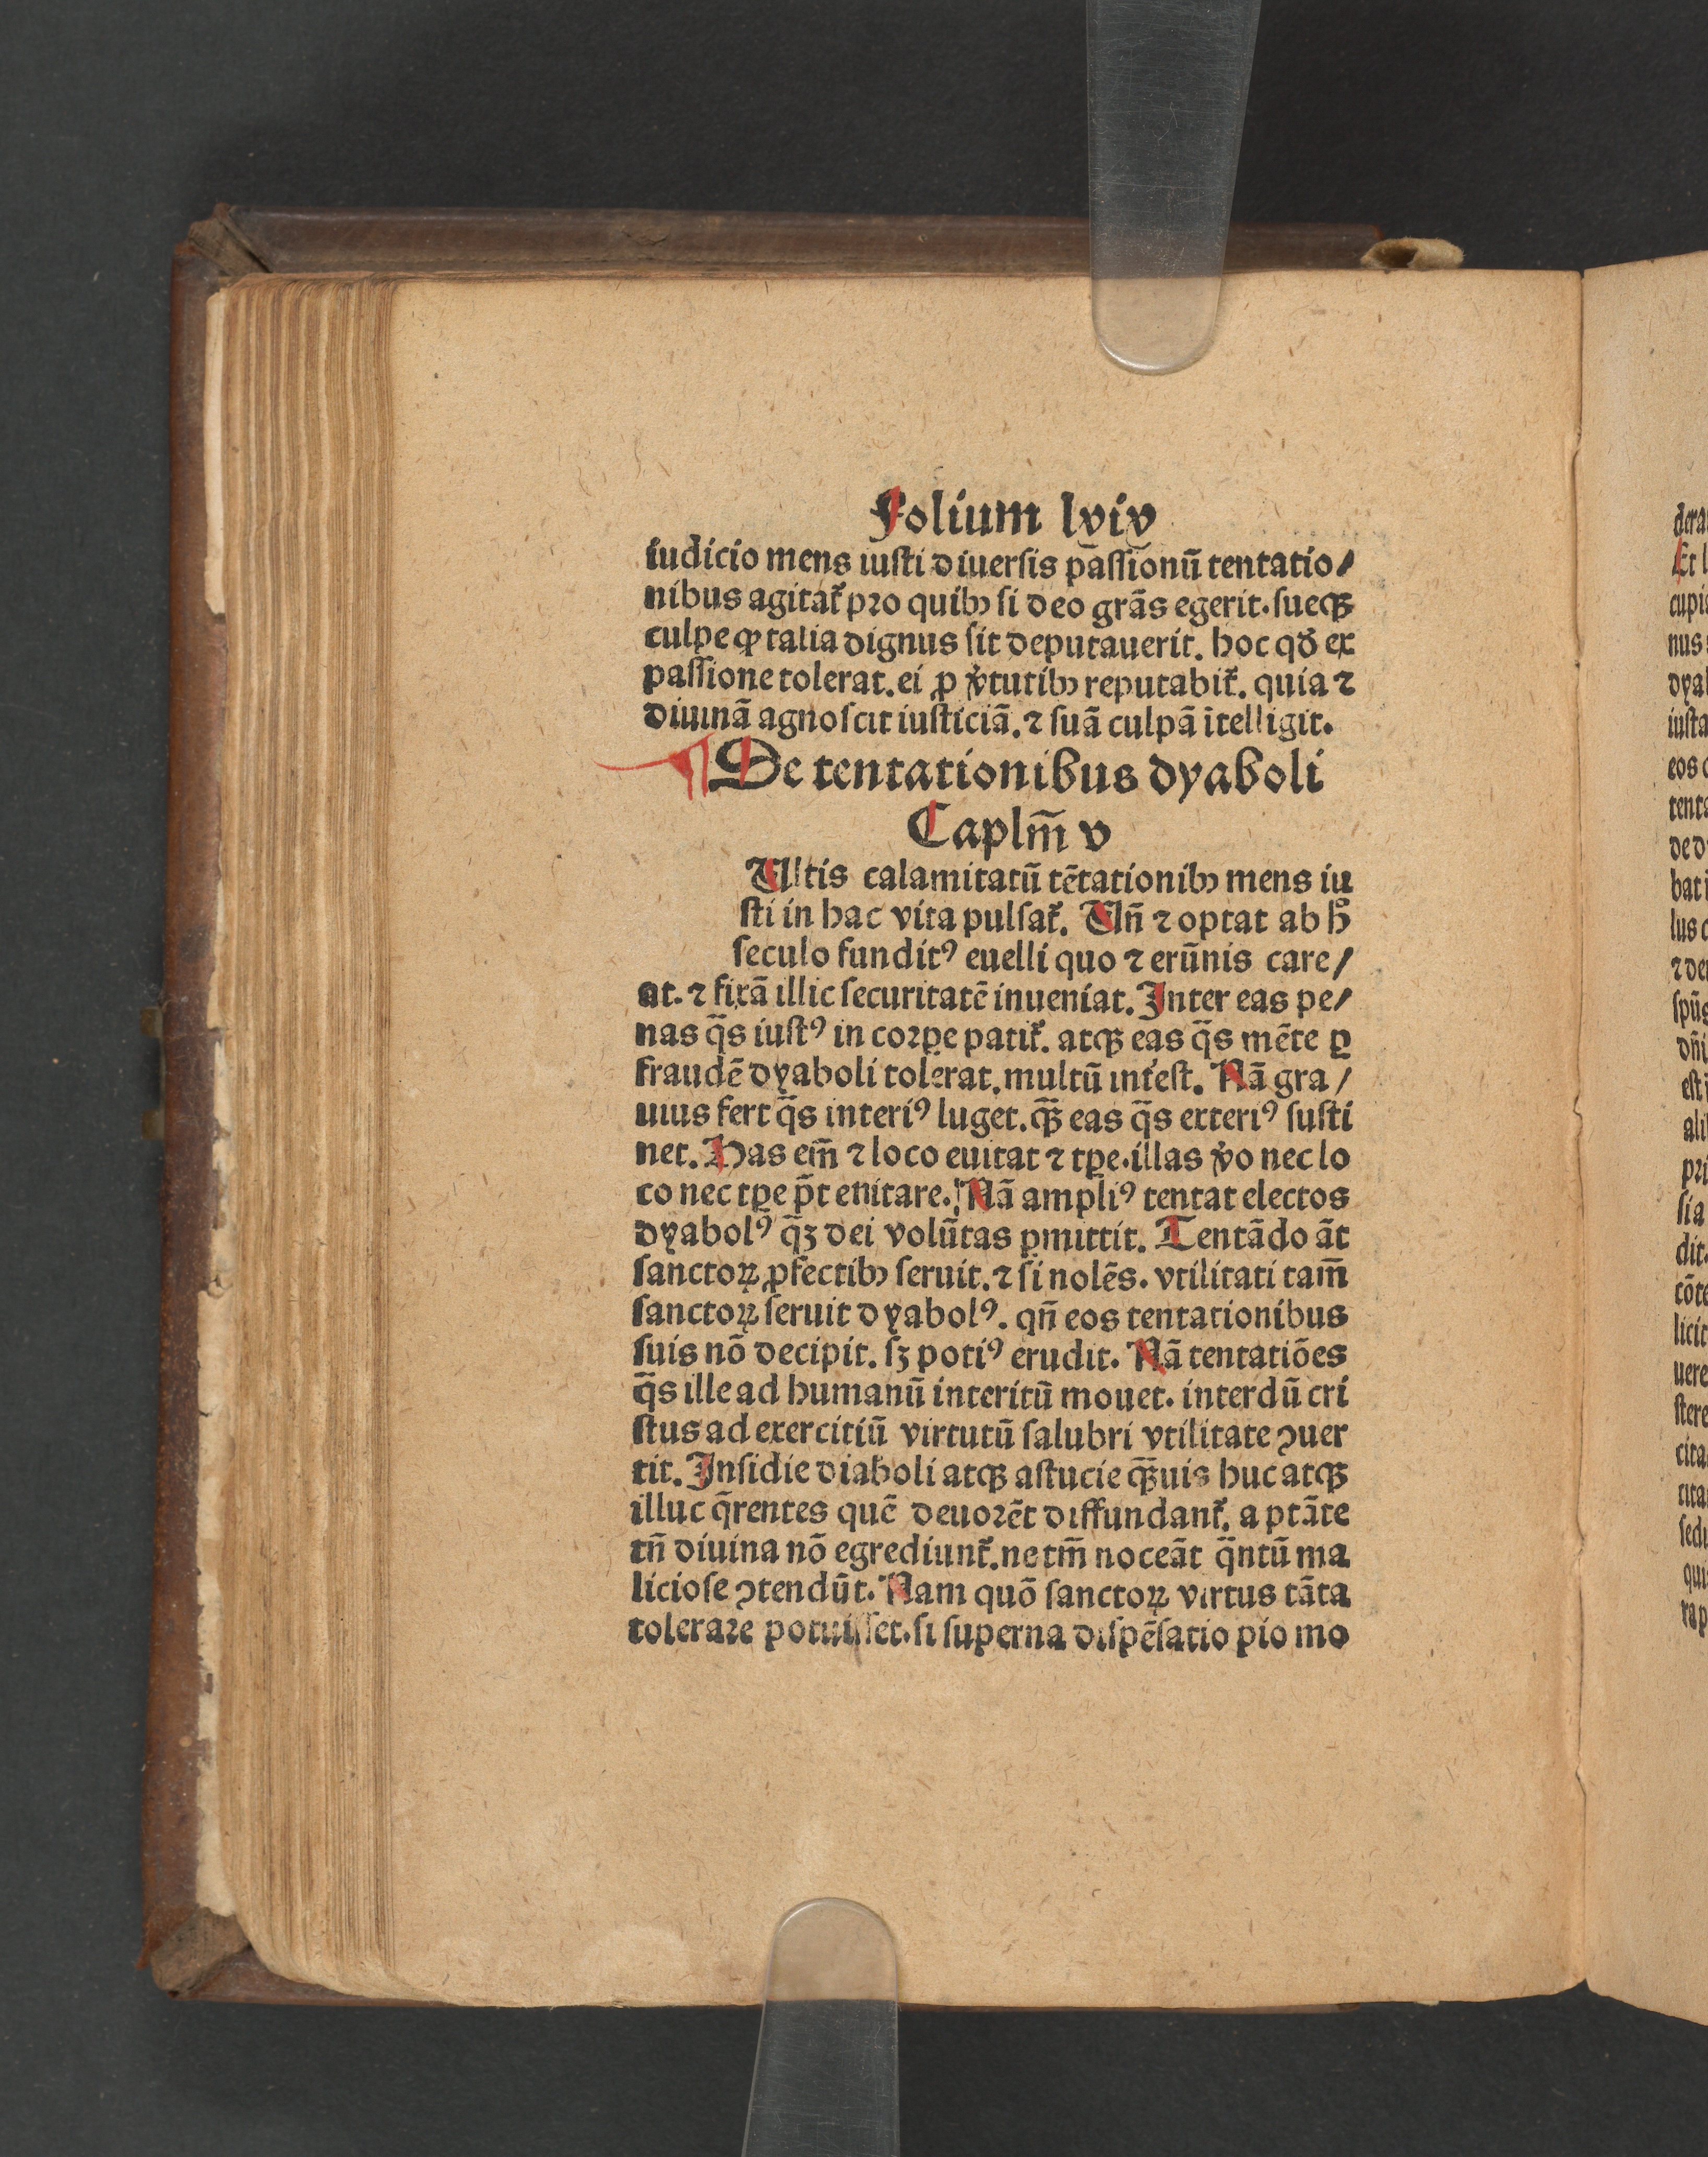 Folium lviv
iudicio mens iuſti diuerſis pãſſionũ tentatio/
nibus agitat᷑ pꝛo quibꝰ ſi deo grãs egerit. ſueqꝫ
culpe ꝙ talia dignus ſit deputauerit. hoc qđ ex
paſſione tolerat. ei ꝓ v̓tutibꝰ reputabit᷑. quia ⁊
diuinã agnoſcit iuſticiã. ⁊ ſuã culpã ĩtelligit.
¶ De tentationibus dyaboli
Caplm̃ v
Ultis calamitatũ tẽtationibꝰ mens iu
ſti in hac vita pulſat᷑. Un̄ ⁊ optat ab h̊
ſeculo fundit᷒ euelli quo ⁊ erũnis care/
at. ⁊ fixã illic ſecuritatẽ inueniat. Inter eas pe/
nas q̃s iuſt᷒ in coꝛꝑe patit᷑. atqꝫ eas q̃s mẽte ꝑ
fraudẽ dyaboli tolerat. multũ int̓eſt. Nã gra/
uius fert q̃s interi᷒ luget. qꝫ̃ eas q̃s exteri᷒ ſuſti
net. Has em̃ ⁊ loco euitat ⁊ tꝑe. illas v̓o nec lo
co nec tꝑe p̄t enitare. Nã ampli᷒ tentat electos
dyabol᷒ q̃ꝫ dei volũtas ꝑmittit. Tentãdo ãt
ſanctoꝝ ꝓfectibꝰ ſeruit. ⁊ ſi nolẽs. vtilitati tam̃
ſanctoꝝ ſeruit dyabol᷒. qn̄ eos tentationibus
ſuis nõ decipit. ſꝫ poti᷒ erudit. Nã tentatiões
q̃s ille ad humanũ interitũ mouet. interdũ cri
ſtus ad exercitiũ virtutũ ſalubri vtilitate ꝯuer
tit. Inſidie diaboli atqꝫ aſtucie qꝫ̃uis huc atqꝫ
illuc q̃rentes quẽ deuoꝛẽt diffundant᷑. a ptãte
tn̄ diuina nõ egrediunt᷑. ne tm̃ noceãt q̃ntũ ma
licioſe ꝯtendũt. Nam quõ ſanctoꝝ virtus tãta
tolerare potuiſſet. ſi ſuperna diſpẽſatio pio mo